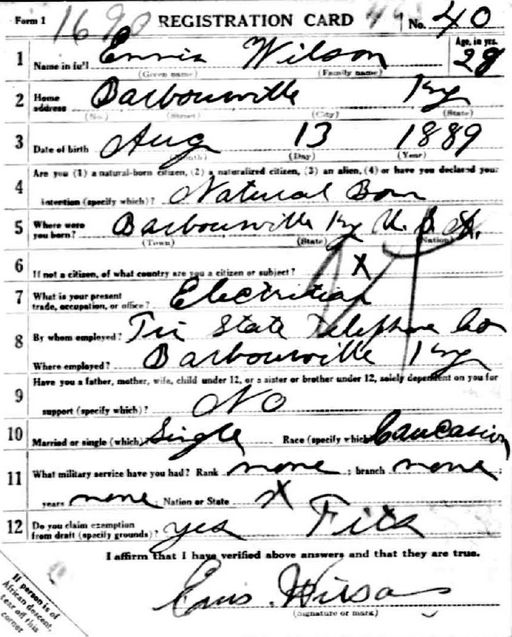 Form 1 1690 REGISTRATION CARD No. 40
1 Name in full Ennis Wilson Age, in yrs. 28
(Given name) (Family name)
2 Home address Barbourville Ky
(No.) (Street) (City) (State)
3 Date of birth Aug 13 1889
(Month) (Day) (Year)
4 Are you (1) a natural-born citizen, (2) a naturalized citizen, (3) an alien, (4) or have you declared your
intention (specify which)? Natural Born
5 Where were you born? Barbourville Ky U.S.A.
(Town) (State) (Nation)
6 If not a citizen, of what country are you a citizen or subject? X
7 What is your present trade, occupation, or office? Electritian
8 By whom employed? Tri State Telephone Co
Where employed? Barbourville Ky
9 Have you a father, mother, wife, child under 12, or a sister or brother under 12, solely dependent on you for
support (specify which)? No
10 Married or single (which) Single Race (specify which) Caucasion
11 What military service have you had? Rank none ; branch none ;
years none ; Nation or State X
12 Do you claim exemption from draft (specify grounds)? yes Fits
I affirm that I have verified above answers and that they are true.
Enis Wilson
(Signature or mark)
If person is of
African descent,
tear off this
corner